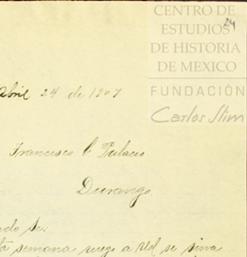 CENTRO DE
ESTUDIOS
DE HISTORIA
DE MEXICO
FUNDACIÓN
Carlos Slim
24
Abril 24 de 1907
Francisco C Palacio
Durango
ado Sr.
semana ruego a Ud. se sirva